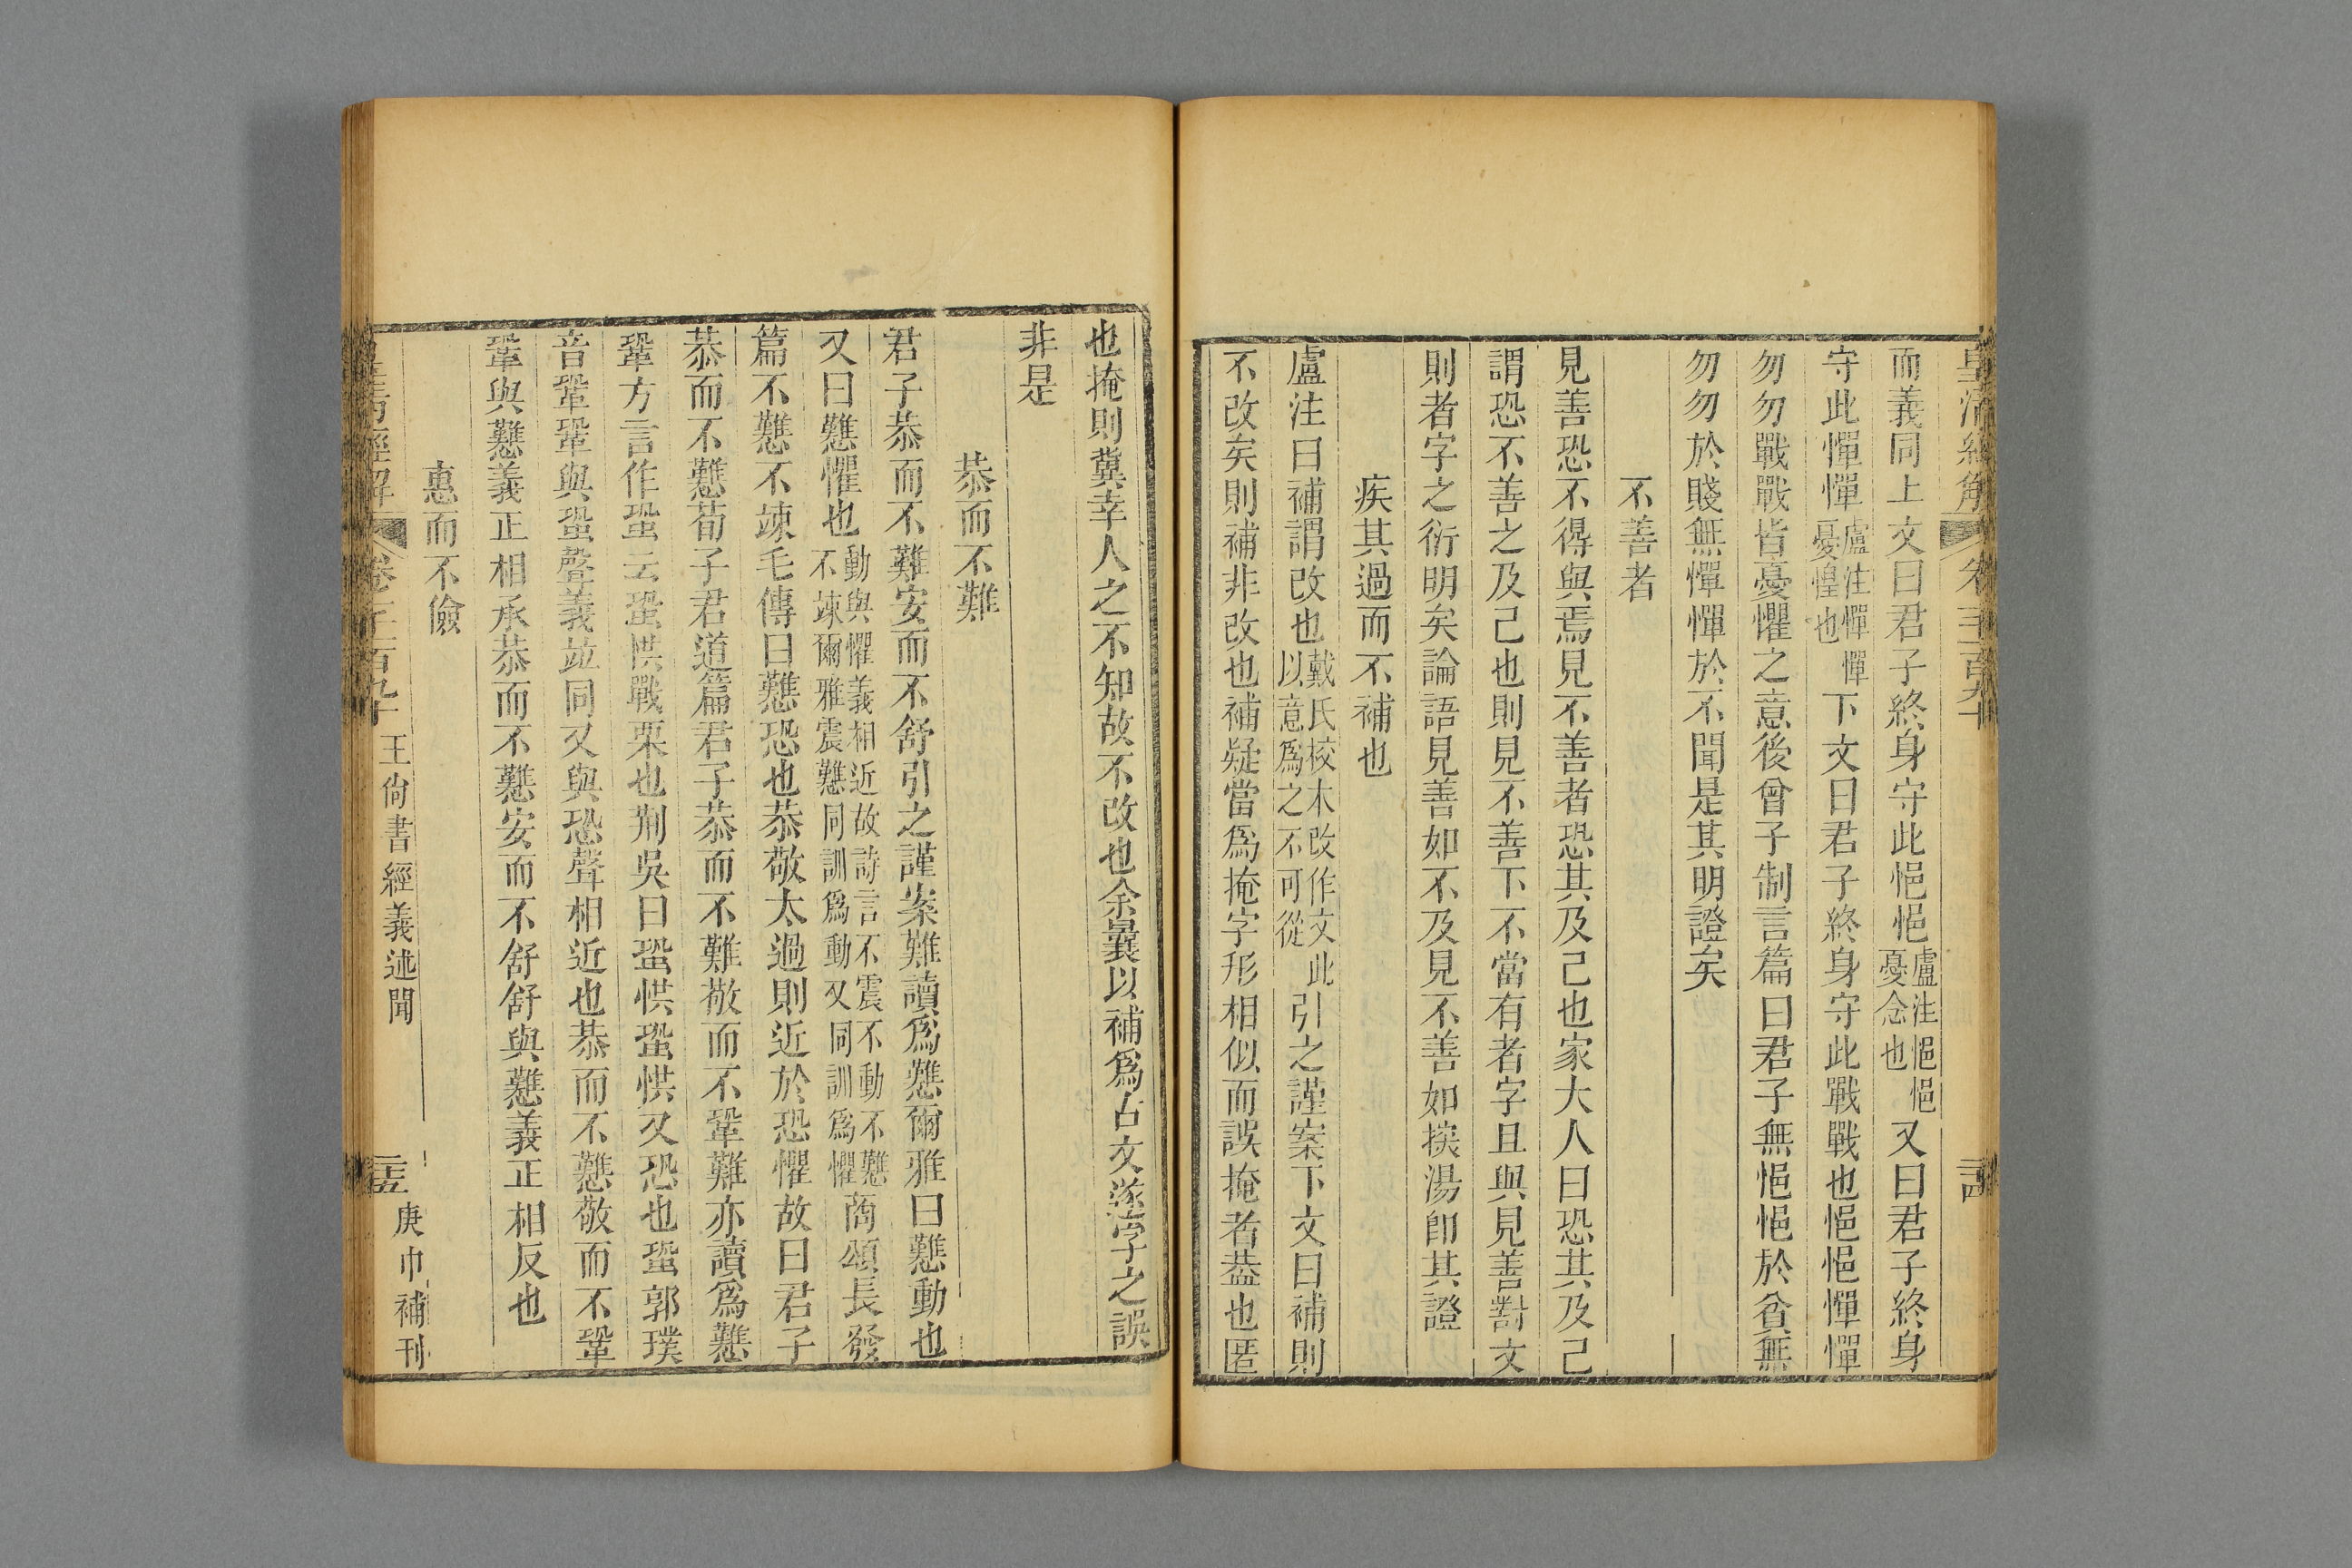 皇清經解 卷千百九十 三四
而義同上文曰君子終身守此悒悒盧注悒悒憂念也又曰君子終身
守此憚憚盧注憚憚憂惶也下文曰君子終身守此戰戰也悒悒憚憚
勿勿戰戰皆憂懼之意後曾子制言篇曰君子無悒悒於貧無
勿勿於賤無憚憚於不聞是其明證矣
不善者
見善恐不得與焉見不善者恐其及己也家大人曰恐其及己
謂恐不善之及己也則見不善下不當有者字且與見善對文
則者字之衍明矣論語見善如不及見不善如探湯卽其證
疾其過而不補也
盧注曰補謂改也戴氏校本改作文此以意爲之不可從引之謹案下文曰補則
不改矣則補非改也補疑當爲掩字形相似而誤掩者葢也匿
也掩則冀幸人之不知故不改也余曩以補爲古文遂字之誤
非是
恭而不難
君子恭而不難安而不舒引之謹案難讀爲戁爾雅曰戁動也
又曰戁懼也動與懼義相近故詩言不震不動不戁不竦爾雅震戁同訓爲動又同訓爲懼商頌長發
篇不戁不竦毛傳曰戁恐也恭敬太過則近於恐懼故曰君子
恭而不戁荀子君道篇君子恭而不難敬而不鞏難亦讀爲戁
鞏方言作蛩云蛩㤨戰栗也荆吳曰蛩㤨蛩㤨又恐也蛩郭璞
音鞏鞏與蛩聲義竝同又與恐聲相近也恭而不戁敬而不鞏
鞏與戁義正相承恭而不戁安而不舒舒與戁義正相反也
惠而不儉
皇清經解 卷千百九十 王尙書經義述聞 三五 庚申補刊